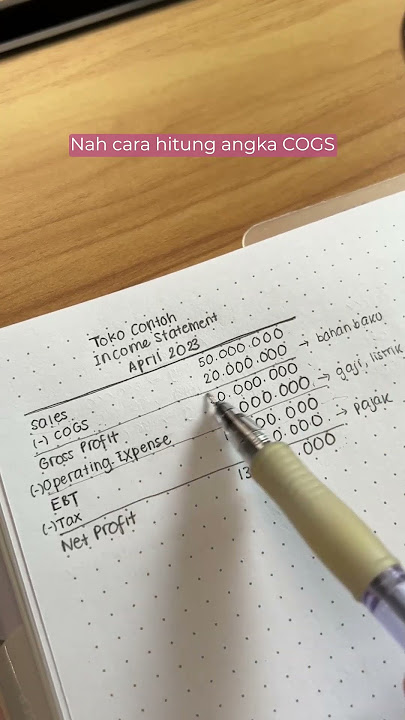 Nah cara hitung angka COGS
Toko Contoh
Income Statement
April 2023
Sales 50.000.000
(-) COGS 20.000.000 → bahan baku
Gross Profit 0.000.000
(-) Operating Expense .000.000 → gaji, listrik
EBT 00.000
(-) Tax .000 → pajak
Net Profit 13 .000